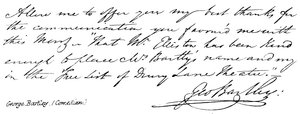 Allow me to offer you my best thanks for
the communication you favor'd me with
this Morng. "that Mr. Elliston has been kind
enough to place Mrs. Bartley's name and my
in the Free List of Drury Lane Theatre."
Geo Bartley.
George Bartley (Comedian)